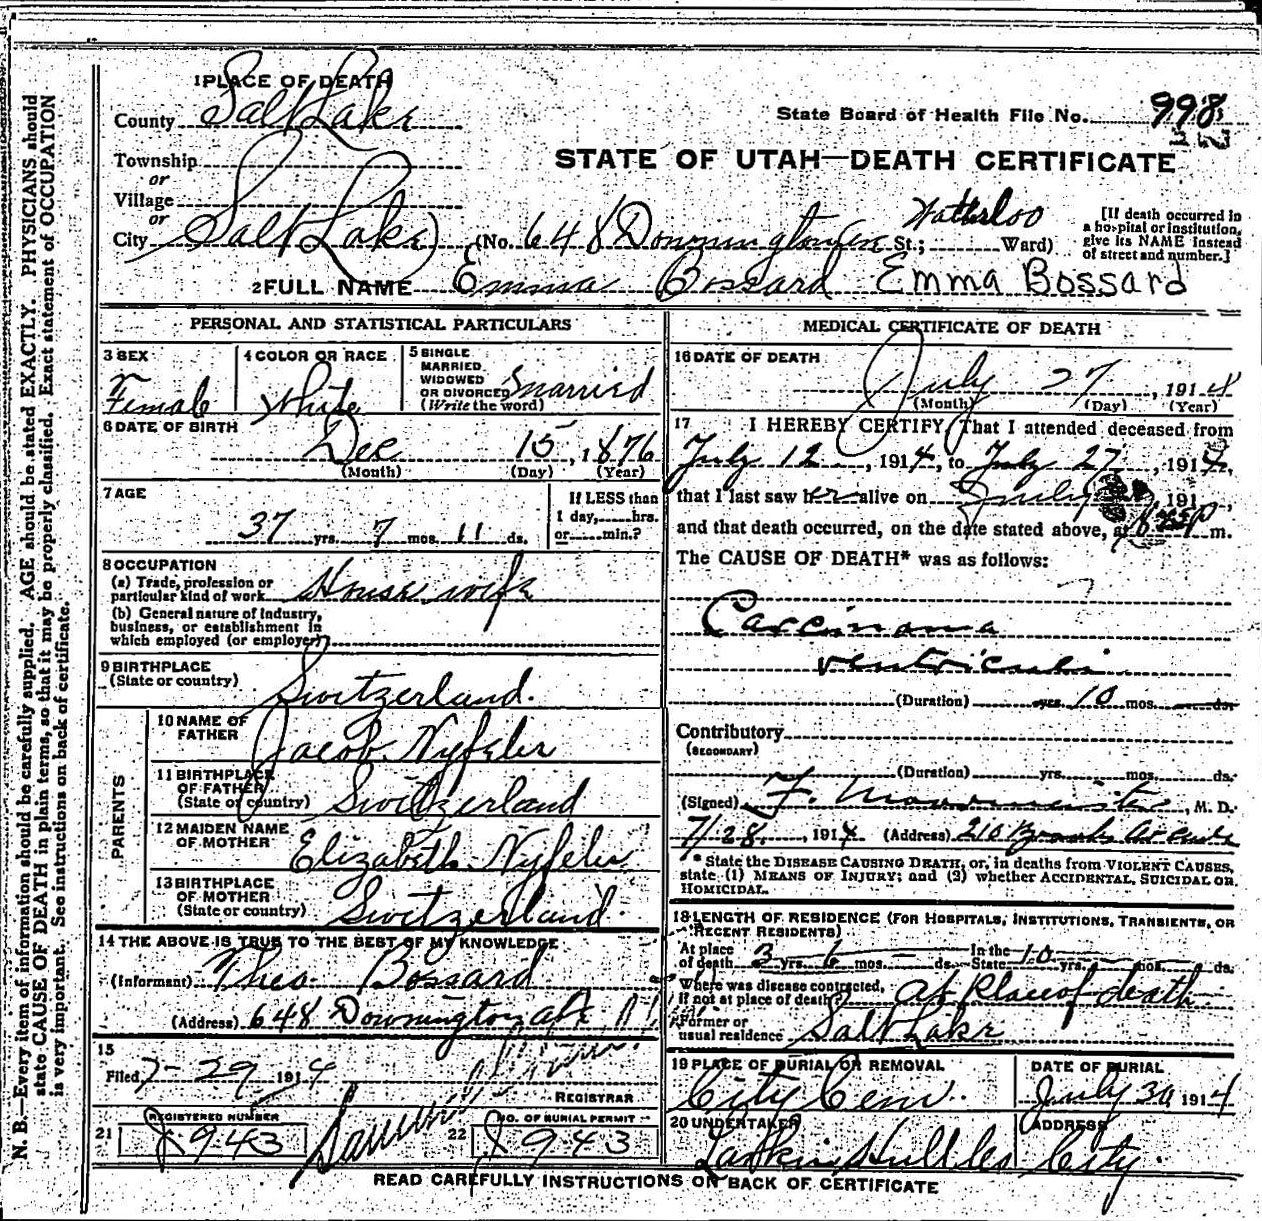 1 PLACE OF DEATH
County Salt Lake
State Board of Health File No. 998
Township
or
Village
or
City Salt Lake
STATE OF UTAH—DEATH CERTIFICATE
(No. 648 Downington Ave St.; Waterloo Ward)
[If death occurred in
a hospital or institution,
give its NAME instead
of street and number.]
2 FULL NAME Emma Bossard Emma Bossard
PERSONAL AND STATISTICAL PARTICULARS
3 SEX
Female
4 COLOR OR RACE
White
5 SINGLE
MARRIED
WIDOWED
OR DIVORCED
(Write the word)
Married
6 DATE OF BIRTH
Dec 15, 1876
(Month) (Day) (Year)
7 AGE
37 yrs. 7 mos. 11 ds.
If LESS than
1 day, hrs.
or min.?
8 OCCUPATION
(a) Trade, profession or
particular kind of work House wife
(b) General nature of industry,
business, or establishment in
which employed (or employer)
9 BIRTHPLACE
(State or country) Switzerland.
PARENTS
10 NAME OF
FATHER Jacob Nyfeler
11 BIRTHPLACE
OF FATHER
(State or country) Switzerland
12 MAIDEN NAME
OF MOTHER Elizabeth Nyfeler
13 BIRTHPLACE
OF MOTHER
(State or country) Switzerland.
14 THE ABOVE IS TRUE TO THE BEST OF MY KNOWLEDGE
(Informant) Theo. Bossard
(Address) 648 Downington ave
15
Filed 7-29 1914
REGISTRAR
21 REGISTERED NUMBER
J 943
22 NO. OF BURIAL PERMIT
J 943
MEDICAL CERTIFICATE OF DEATH
16 DATE OF DEATH
July 27, 1914
(Month) (Day) (Year)
17 I HEREBY CERTIFY, That I attended deceased from
July 12, 1914, to July 27, 1914,
that I last saw her alive on July 191
and that death occurred, on the date stated above, at m.
The CAUSE OF DEATH* was as follows:
Carcinoma
ventriculi
(Duration) yrs. 10 mos. ds.
Contributory
(SECONDARY)
(Duration) yrs. mos. ds.
(Signed) F. , M. D.
7/28, 1914 (Address) 210
* State the DISEASE CAUSING DEATH, or, in deaths from VIOLENT CAUSES,
state (1) MEANS OF INJURY; and (2) whether ACCIDENTAL, SUICIDAL OR
HOMICIDAL.
18 LENGTH OF RESIDENCE (FOR HOSPITALS, INSTITUTIONS, TRANSIENTS, OR
RECENT RESIDENTS)
At place
of death 3 yrs. 6 mos. ds. In the State 10 yrs. mos. ds.
Where was disease contracted,
if not at place of death? At Place of death
Former or
usual residence Salt Lake
19 PLACE OF BURIAL OR REMOVAL
City Cem.
DATE OF BURIAL
July 30 1914
20 UNDERTAKER
Larkin Hull
ADDRESS
City.
READ CAREFULLY INSTRUCTIONS ON BACK OF CERTIFICATE
N. B.—Every item of information should be carefully supplied. AGE should be stated EXACTLY. PHYSICIANS should
state CAUSE OF DEATH in plain terms, so that it may be properly classified. Exact statement of OCCUPATION
is very important. See instructions on back of certificate.